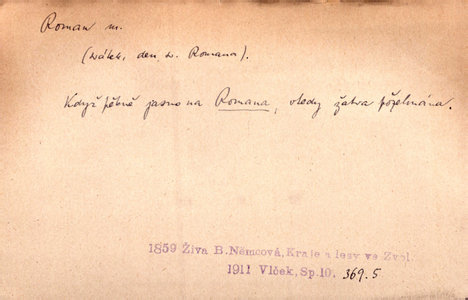 Roman m.
(svátek, den sv. Romana).
Když pěkně jasno na Romana, vtedy žatva požehnána.
1859 Živa B.Němcová, Kraje a lesy ve Zvol.
1911 Vlček, Sp.10. 369.5